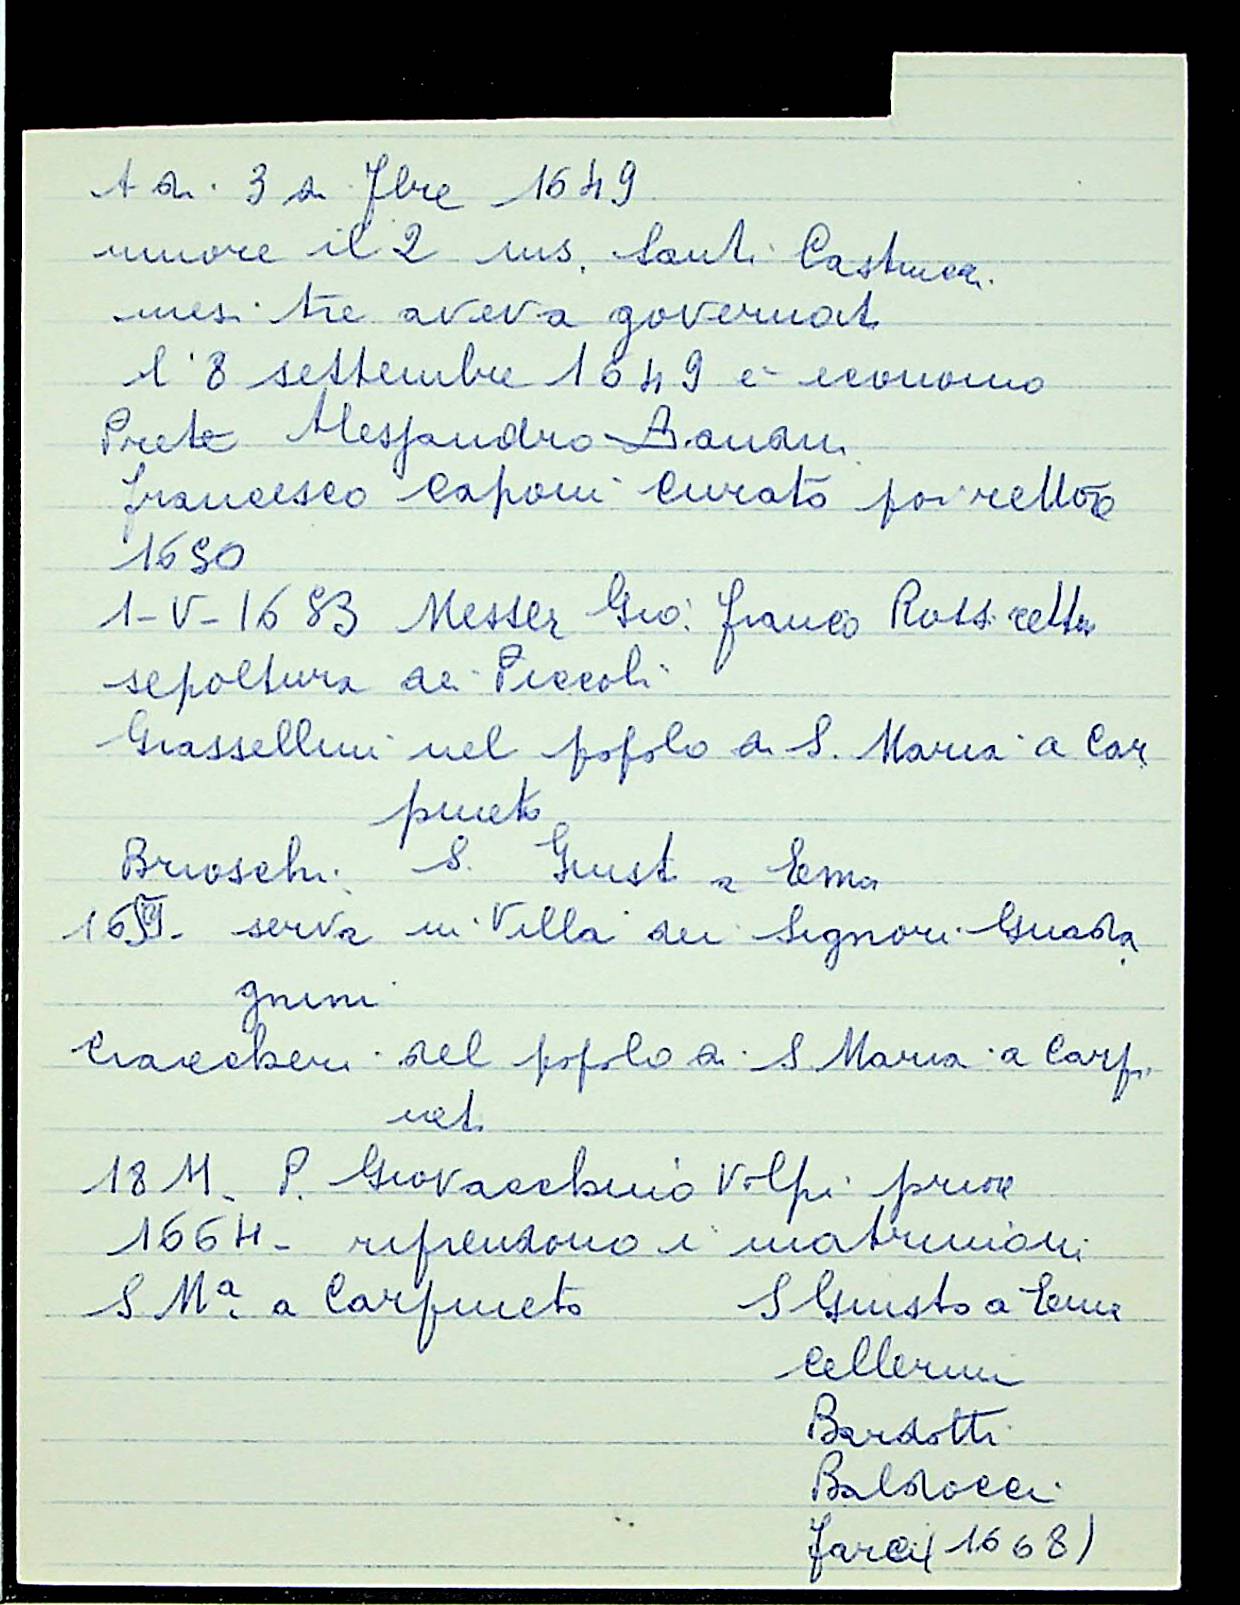 A di 3 di 7bre 1649
muore il 2 ms. Santi Castrucci
mesi tre aveva governato
l'8 settembre 1649 è economo
Prete Alessandro Bandini
francesco Caponi Curato poi rettore
1650
1-V-1683 Messer Gio: franco Rossi rettor
sepoltura dei Piccoli
Grassellini nel popolo di S. Maria a Car
pineto
Brioschi S. Giusto a Ema
165 - serva in Villa dei Signori Guada
gnini
Ciaccheri del popolo di S Maria a Carpi
neto
18 - P. Giovacchino Volpi priore
1664 - riprendono i matrimoni
S Mª a Carpineto S Giusto a Ema
Cellerini
Bardotti
Baldocci
farci (1668)